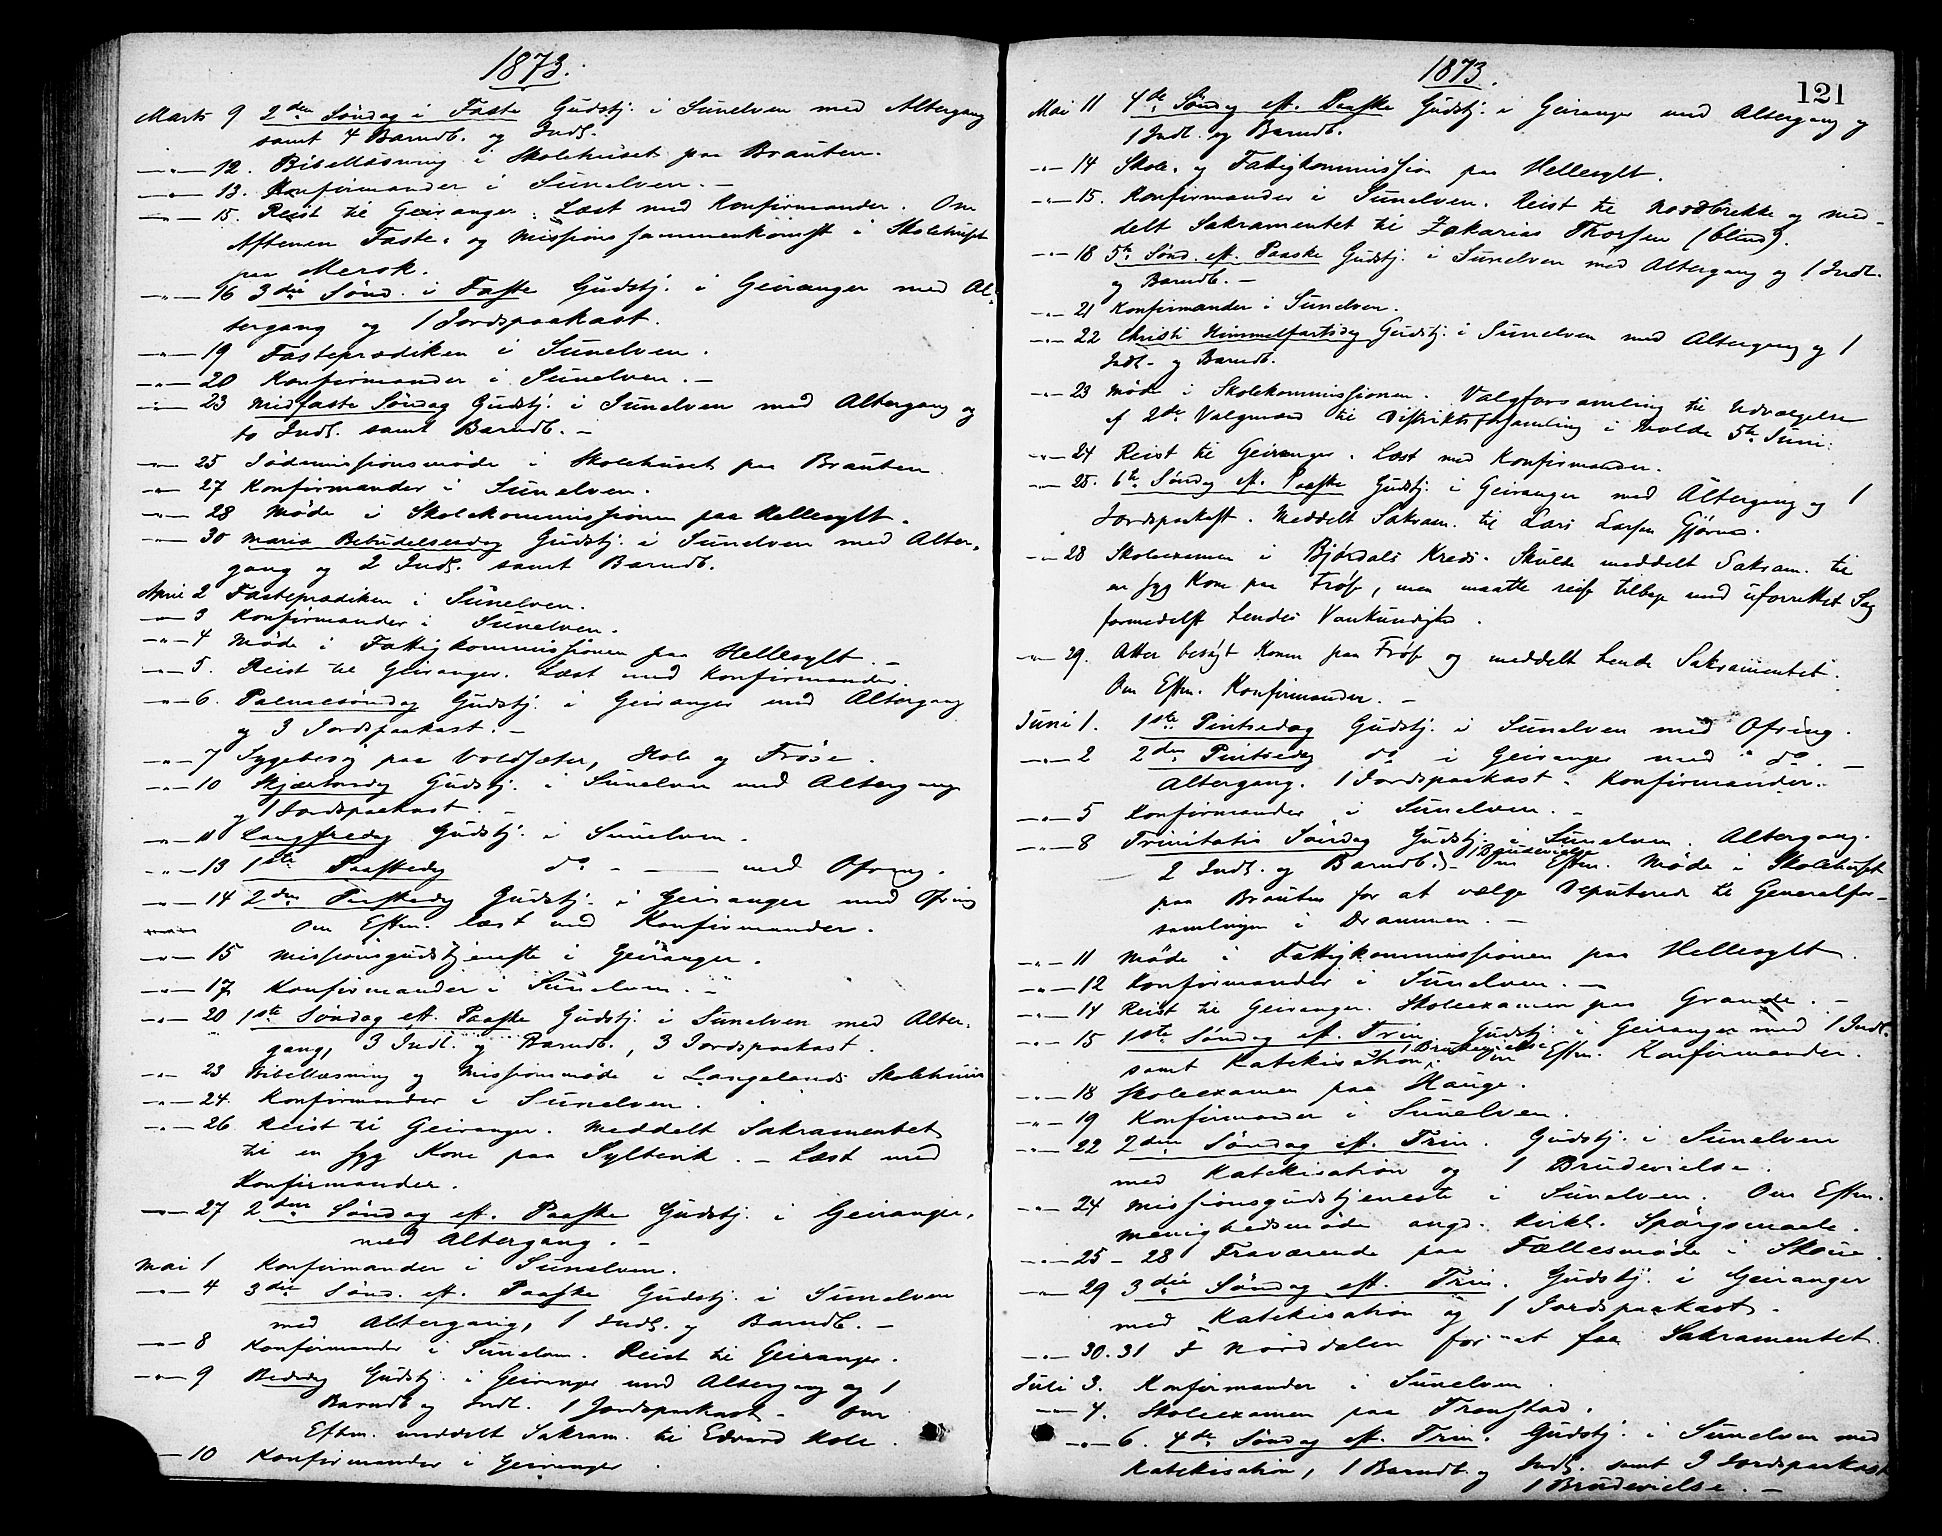 1873.
Marts 9 2den Søndag i Faste Gudstj. i Sunelven med Altergang
samt 4 Barndb. og Indl.
—"— 12. Bibellæsning i Skolehuset paa Brauten.
—"— 13. Konfirmander i Sunelven. —
—"— 15. Reist til Geiranger. Læst med Konfirmander. Om
Aftenen Faste- og Missionssammenkomst i Skolehuset
paa Merok.
—"— 16 3die Sønd. i Faste Gudstj. i Geiranger med Al-
tergang og 1 Jordspaakast.
—"— 19 Fasteprædiken i Sunelven.
—"— 20 Konfirmander i Sunelven. —
—"— 23 Midfaste Søndag Gudstj. i Sunelven med Altergang og
to Indl. samt Barndb. —
—"— 25 Jødemissionsmøde i Skolehuset paa Brauten.
—"— 27 Konfirmander i Sunelven.
—"— 28 Møde i Skolekommissionen paa Hellesylt.
—"— 30 Maria Bebudelsesdag Gudstj. i Sunelven med Alter-
gang og 2 Indl. samt Barndb.
April 2 Fasteprædiken i Sunelven.
—"— 3 Konfirmander i Sunelven.
—"— 4 Møde i Fattigkommissionen paa Hellesylt. —
—"— 5. Reist til Geiranger. Læst med Konfirmander.
—"— 6. Palmesøndag Gudstj. i Geiranger med Altergang
og 3 Jordspaakast. —
—"— 7 Sygebesøg paa Voldsæter, Hole og Frøse.
—"— 10 Skjærtorsdag Gudstj. i Sunelven med Altergang
og 1 Jordspaakast. —
—"— 11 Langfredag Gudstj. i Sunelven.
—"— 13 1ste Paaskedag do — — med Ofring.
—"— 14 2den Paaskedag Gudstj. i Geiranger med Ofring
Om Eftm. læst med Konfirmander.
—"— 15 Missionsgudstjeneste i Geiranger.
—"— 17 Konfirmander i Sunelven. —
—"— 20 1ste Søndag eft. Paaske Gudstj. i Sunelven med Alter-
gang, 3 Indl. og Barndb., 3 Jordspaakast.
—"— 23 Bibellæsning og Missionsmøde i Langelands Skolehuus
—"— 24. Konfirmander i Sunelven.
—"— 26 Reist til Geiranger. Meddelt Sakramentet
til en syg Kone paa Syltevik. — Læst med
Konfirmander.
—"— 27 2den Søndag eft. Paaske Gudstj. i Geiranger,
med Altergang. —
Mai 1 Konfirmander i Sunelven.
—"— 4 3die Sønd. eft. Paaske Gudstj. i Sunelven
med Altergang, 1 Indl. og Barndb. —
—"— 8 Konfirmander i Sunelven. Reist til Geiranger.
—"— 9 Bededag Gudstj. i Geiranger med Altergang og 1
Barndb og Indl. 1 Jordspaakast — Om
Eftm. meddelt Sakram. til Edvard Hole.
— 10 Konfirmander i Geiranger.
1873.
121
Mai 11 4de Søndag eft. Paaske Gudstj. i Geiranger med Altergang og
1 Indl. og Barndb.
—"— 14 Skole- og Fattigkommission paa Hellesylt.
—"— 15. Konfirmander i Sunelven. Reist til Nordbrekke og med-
delt Sakramentet til Zakarias Thorsen (blind).
—"— 18 5te Sønd. eft. Paaske Gudstj. i Sunelven med Altergang og 1 Indl.
og Barndb. —
—"— 21 Konfirmander i Sunelven.
—"— 22 Christi Himmelfartsdag Gudstj. i Sunelven med Altergang og 1
Indl. og Barndb.
—"— 23 Møde i Skolekommissionen. Valgforsamling til Udvælgelse
af 2de Valgmænd til Distriktsforsamling i Molde 5te Juni.
—"— 24 Reist til Geiranger. Læst med Konfirmander.
—"— 25. 6te Søndag eft. Paaske Gudstj. i Geiranger med Altergang og 1
Jordspaakast. Meddelt Sakram. til Lars Larsen Gjørva.
—"— 28 Skoleexamen i Bjørdals Kreds. Skulde meddelt Sakram. til
en syg Kone paa Frøse, men maatte reise tilbage med uforrettet Sag
formedelst hendes Vankundighed.
—"— 29. Atter besøgt Konen paa Frøse og meddelt hende Sakramentet.
Om Eftm. Konfirmander. —
Juni 1. 1ste Pintsedag Gudstj. i Sunelven med Ofring.
—"— 2 2den Pintsedag do i Geiranger med do. —
Altergang. 1 Jordspaakast. Konfirmander.
—"— 5 Konfirmander i Sunelven. —
—"— 8 Trinitatis Søndag Gudstj. i Sunelven. Altergang.
2 Indl. og Barndb. 1 Brudevielse — Om Eftm. Møde i Skolehuset
paa Brauten for at vælge Deputerede til Generalfor-
samlingen i Drammen. —
—"— 11 Møde i Fattigkommissionen paa Hellesylt.
—"— 12 Konfirmander i Sunelven. —
—"— 14 Reist til Geiranger. Skoleexamen paa Grande. —
—"— 15 1ste Søndag eft. Trin. Gudstj. i Geiranger med 1 Indl.
samt Katekisation, Brudevielse Om Eftm. Konfirmander.
—"— 18 Skoleexamen paa Hauge.
—"— 19 Konfirmander i Sunelven.
—"— 22 2den Søndag eft. Trin. Gudstj. i Sunelven
med Katekisation og 1 Brudevielse.
—"— 24 Missionsgudstjeneste i Sunelven. Om Eftm.
menighedsmøde angd. kirkl. Spørgsmaale.
—"— 25 – 28 Fraværende paa Fællesmøde i Skoue.
—"— 29 3die Søndag eft. Trin. Gudstj. i Geiranger
med Katekisation og 1 Jordspaakast.
—"— 30. 31 I Norddalen for at faa Sakramentet.
Juli 3. Konfirmander i Sunelven.
—"— 4. Skoleexamen paa Tronstad.
—"— 6. 4de Søndag eft. Trin. Gudstj. i Sunelven med
Katekisation, 1 Barndb. og Indl. samt 3 Jordspaakast
1 Brudevielse. —